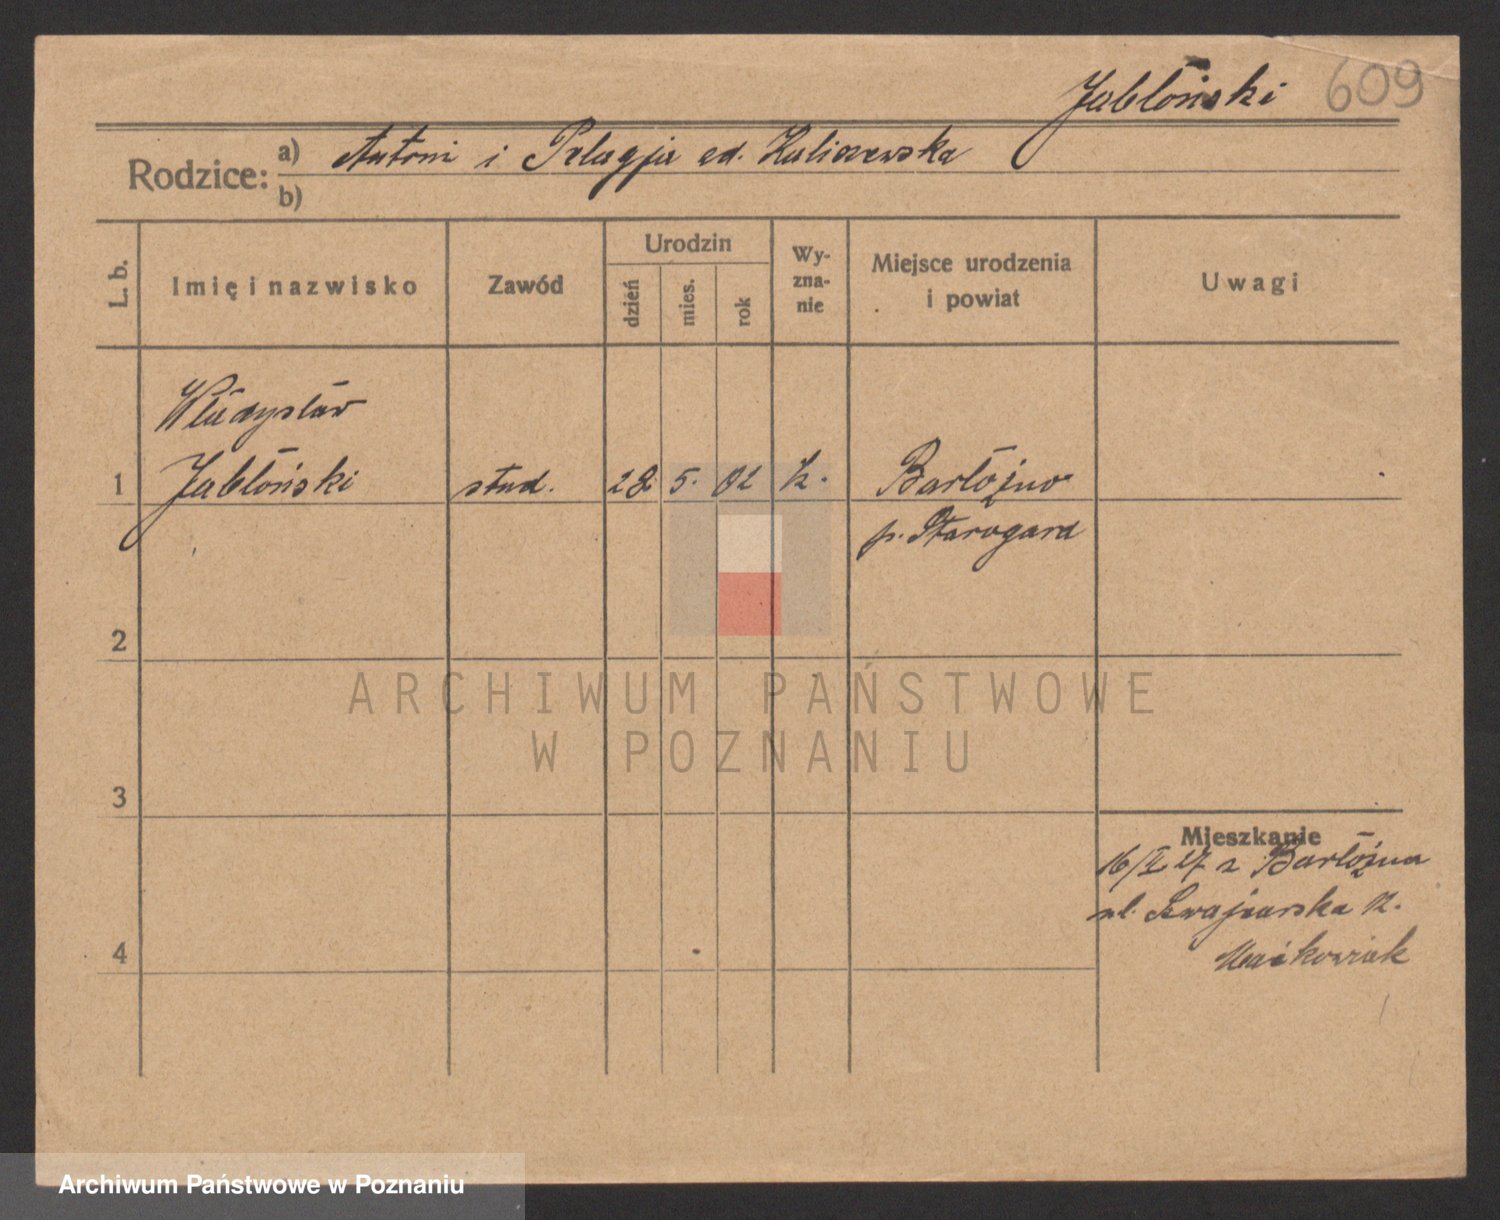 Jabłoński 609
Rodzice: a) Antoni i Pelagja zd. Kuliszewska
b)
L. b. Imię i nazwisko Zawód Urodzin dzień mies. rok Wyznanie Miejsce urodzenia i powiat Uwagi
Władysław
1 Jabłoński stud. 28. 5. 02 k. Barłóżno
p. Starogard
2
ARCHIWUM PAŃSTWOWE
W POZNANIU
3
Mieszkanie
16/X 27 z Barłóżna
ul. Szwajcarska 12.
4 Maćkowiak
Archiwum Państwowe w Poznaniu